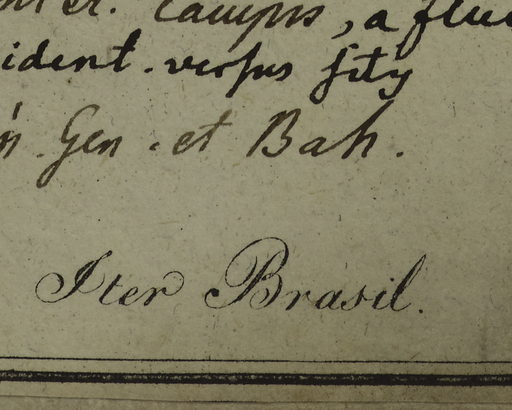 campis, a flu
ident. versus sity
n. Gen. et Bah.
Iter Brasil.